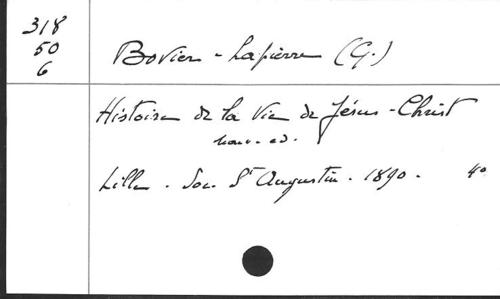 318
50
6
Bovier-Lapierre (G.)
Histoire de la Vie de Jésus-Christ
nouv. ed.
Lille. Soc. St Augustin. 1890. 4°